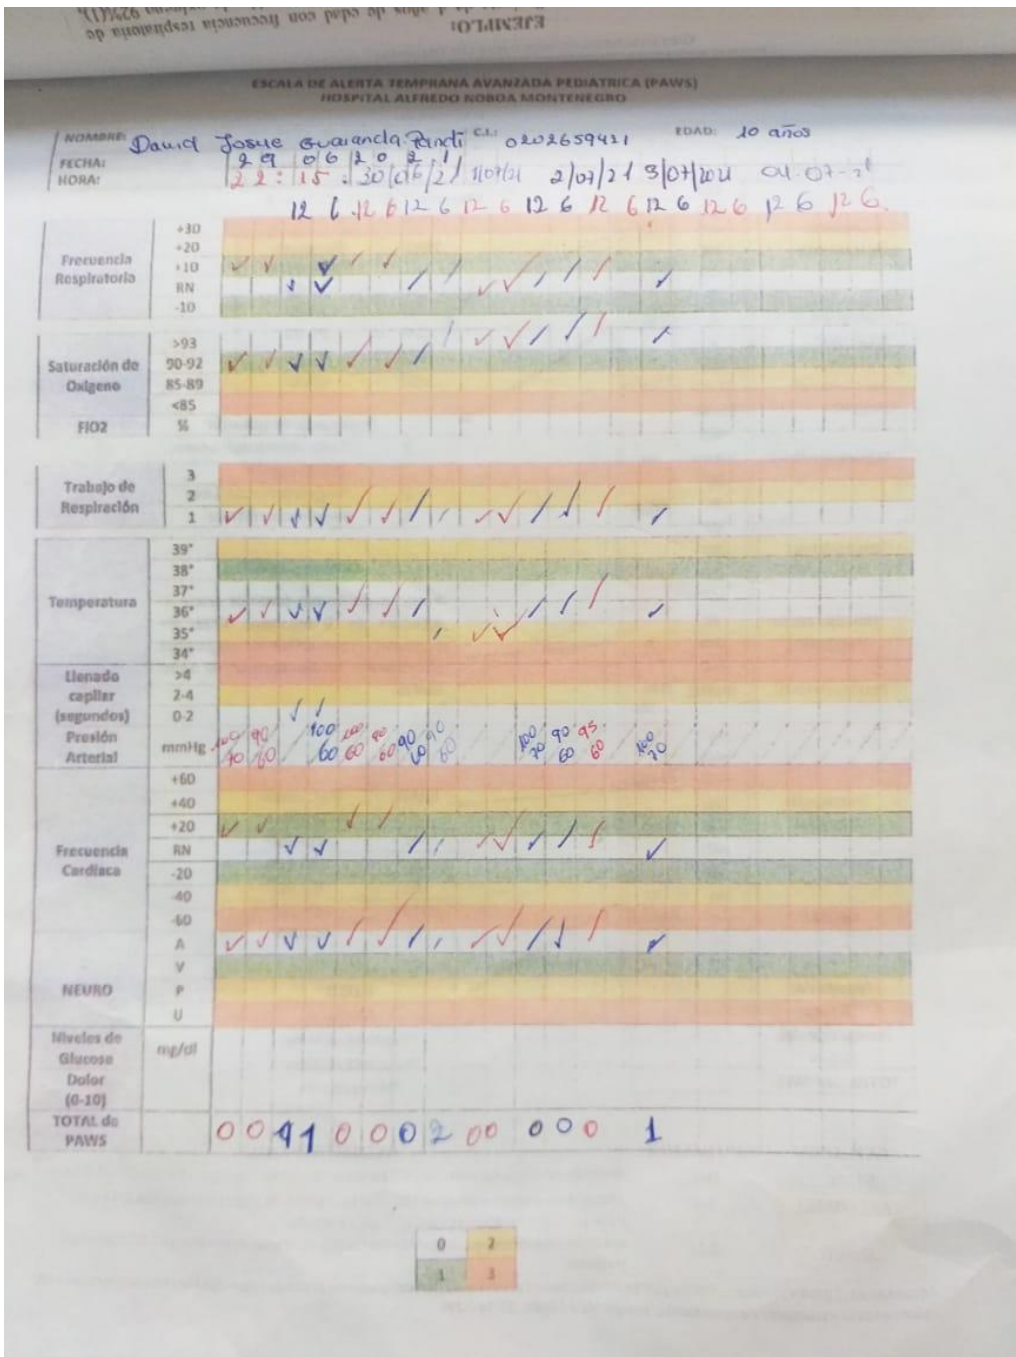 EJEMPLO:
años de edad con frecuencia respiratoria de
ESCALA DE ALERTA TEMPRANA AVANZADA PEDIATRICA (PAWS)
HOSPITAL ALFREDO NOBOA MONTENEGRO
NOMBRE: David Josue Guaranda C.I.: 0202659421 EDAD: 10 años
FECHA: 29 06 2021
HORA: 22:15. 30/06/21 1/07/21 2/07/21 3/07/2021 04-07-21
12 6 12 6 12 6 12 6 12 6 12 6 12 6 12 6 12 6 12 6
Frecuencia Respiratoria
+30
+20
+10
RN
-10
Saturación de Oxígeno
>93
90-92
85-89
<85
FIO2 %
Trabajo de Respiración
3
2
1
Temperatura
39°
38°
37°
36°
35°
34°
Llenado capilar (segundos)
>4
2-4
0-2
Presión Arterial mmHg 100/70 90/60 100/60 100/60 90/60 90/60 90/60 100/70 90/60 95/60 100/70
Frecuencia Cardiaca
+60
+40
+20
RN
-20
-40
-60
NEURO
A
V
P
U
Niveles de Glucosa mg/dl
Dolor (0-10)
TOTAL de PAWS 0 0 1 1 0 0 0 2 0 0 0 0 0 1
0 2
1 3